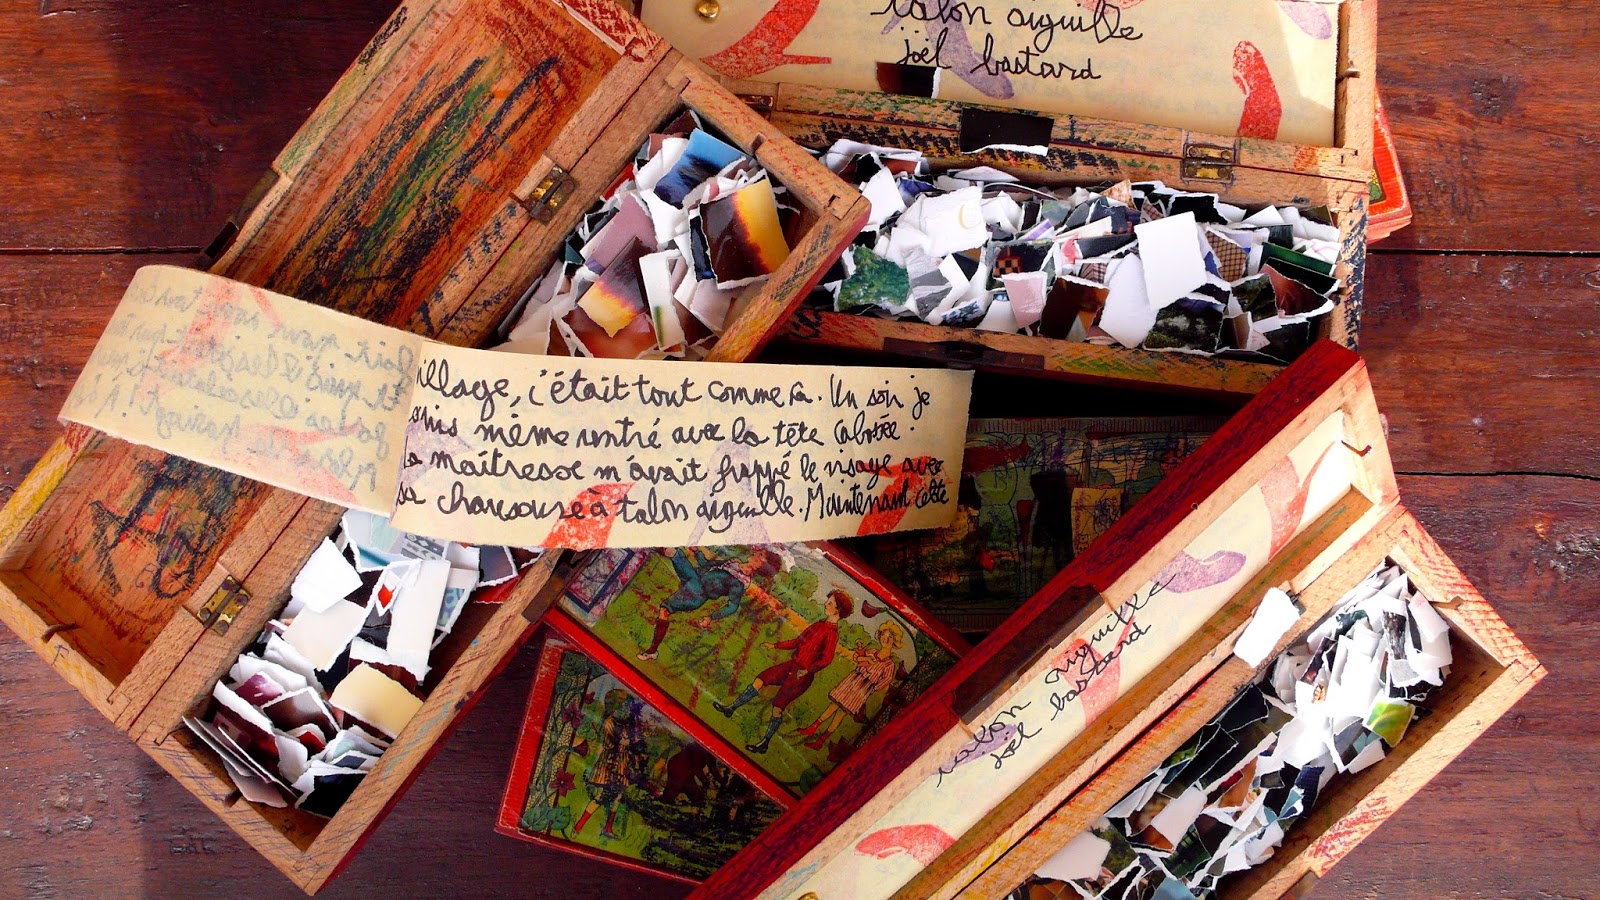 talon aiguille
joël bastard
illage, c'était tout comme ça. Un soir je
suis même rentré avec la tête cabossée.
la maîtresse m'avait frappé le visage avec
sa chaussure à talon aiguille. Maintenant cette
talon aiguille
joël bastard